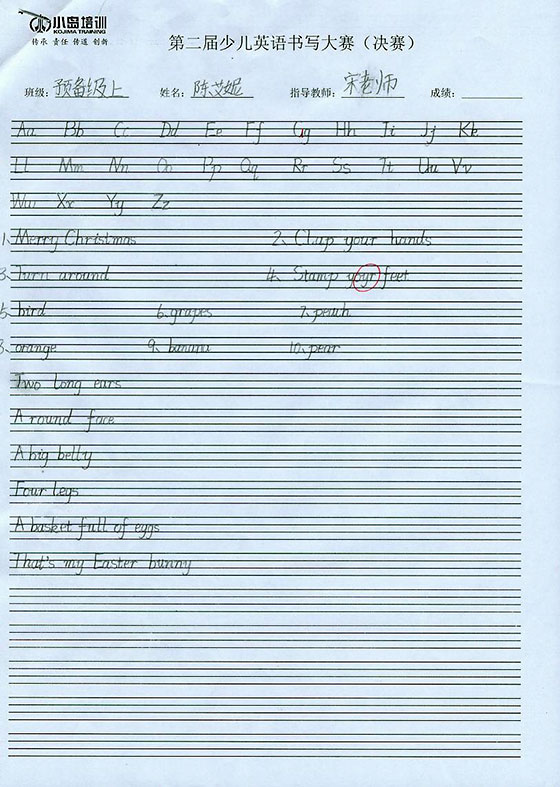 小岛培训
KOJIMA TRAINING
传承 责任 传道 创新
第二届少儿英语书写大赛（决赛）
班级：预备级上 姓名：陈艾妮 指导教师：宋老师 成绩：
Aa Bb Cc Dd Ee Ff Gg Hh Ii Jj Kk
Ll Mm Nn Oo Pp Qq Rr Ss Tt Uu Vv
Ww Xx Yy Zz
1、Merry Christmas 2、Clap your hands
3、Turn around 4、Stamp yoyr feet
5、bird 6、grapes 7、peach
8、orange 9、banana 10、pear
Two long ears
A round face
A big belly
Four legs
A basket full of eggs
That's my Easter bunny